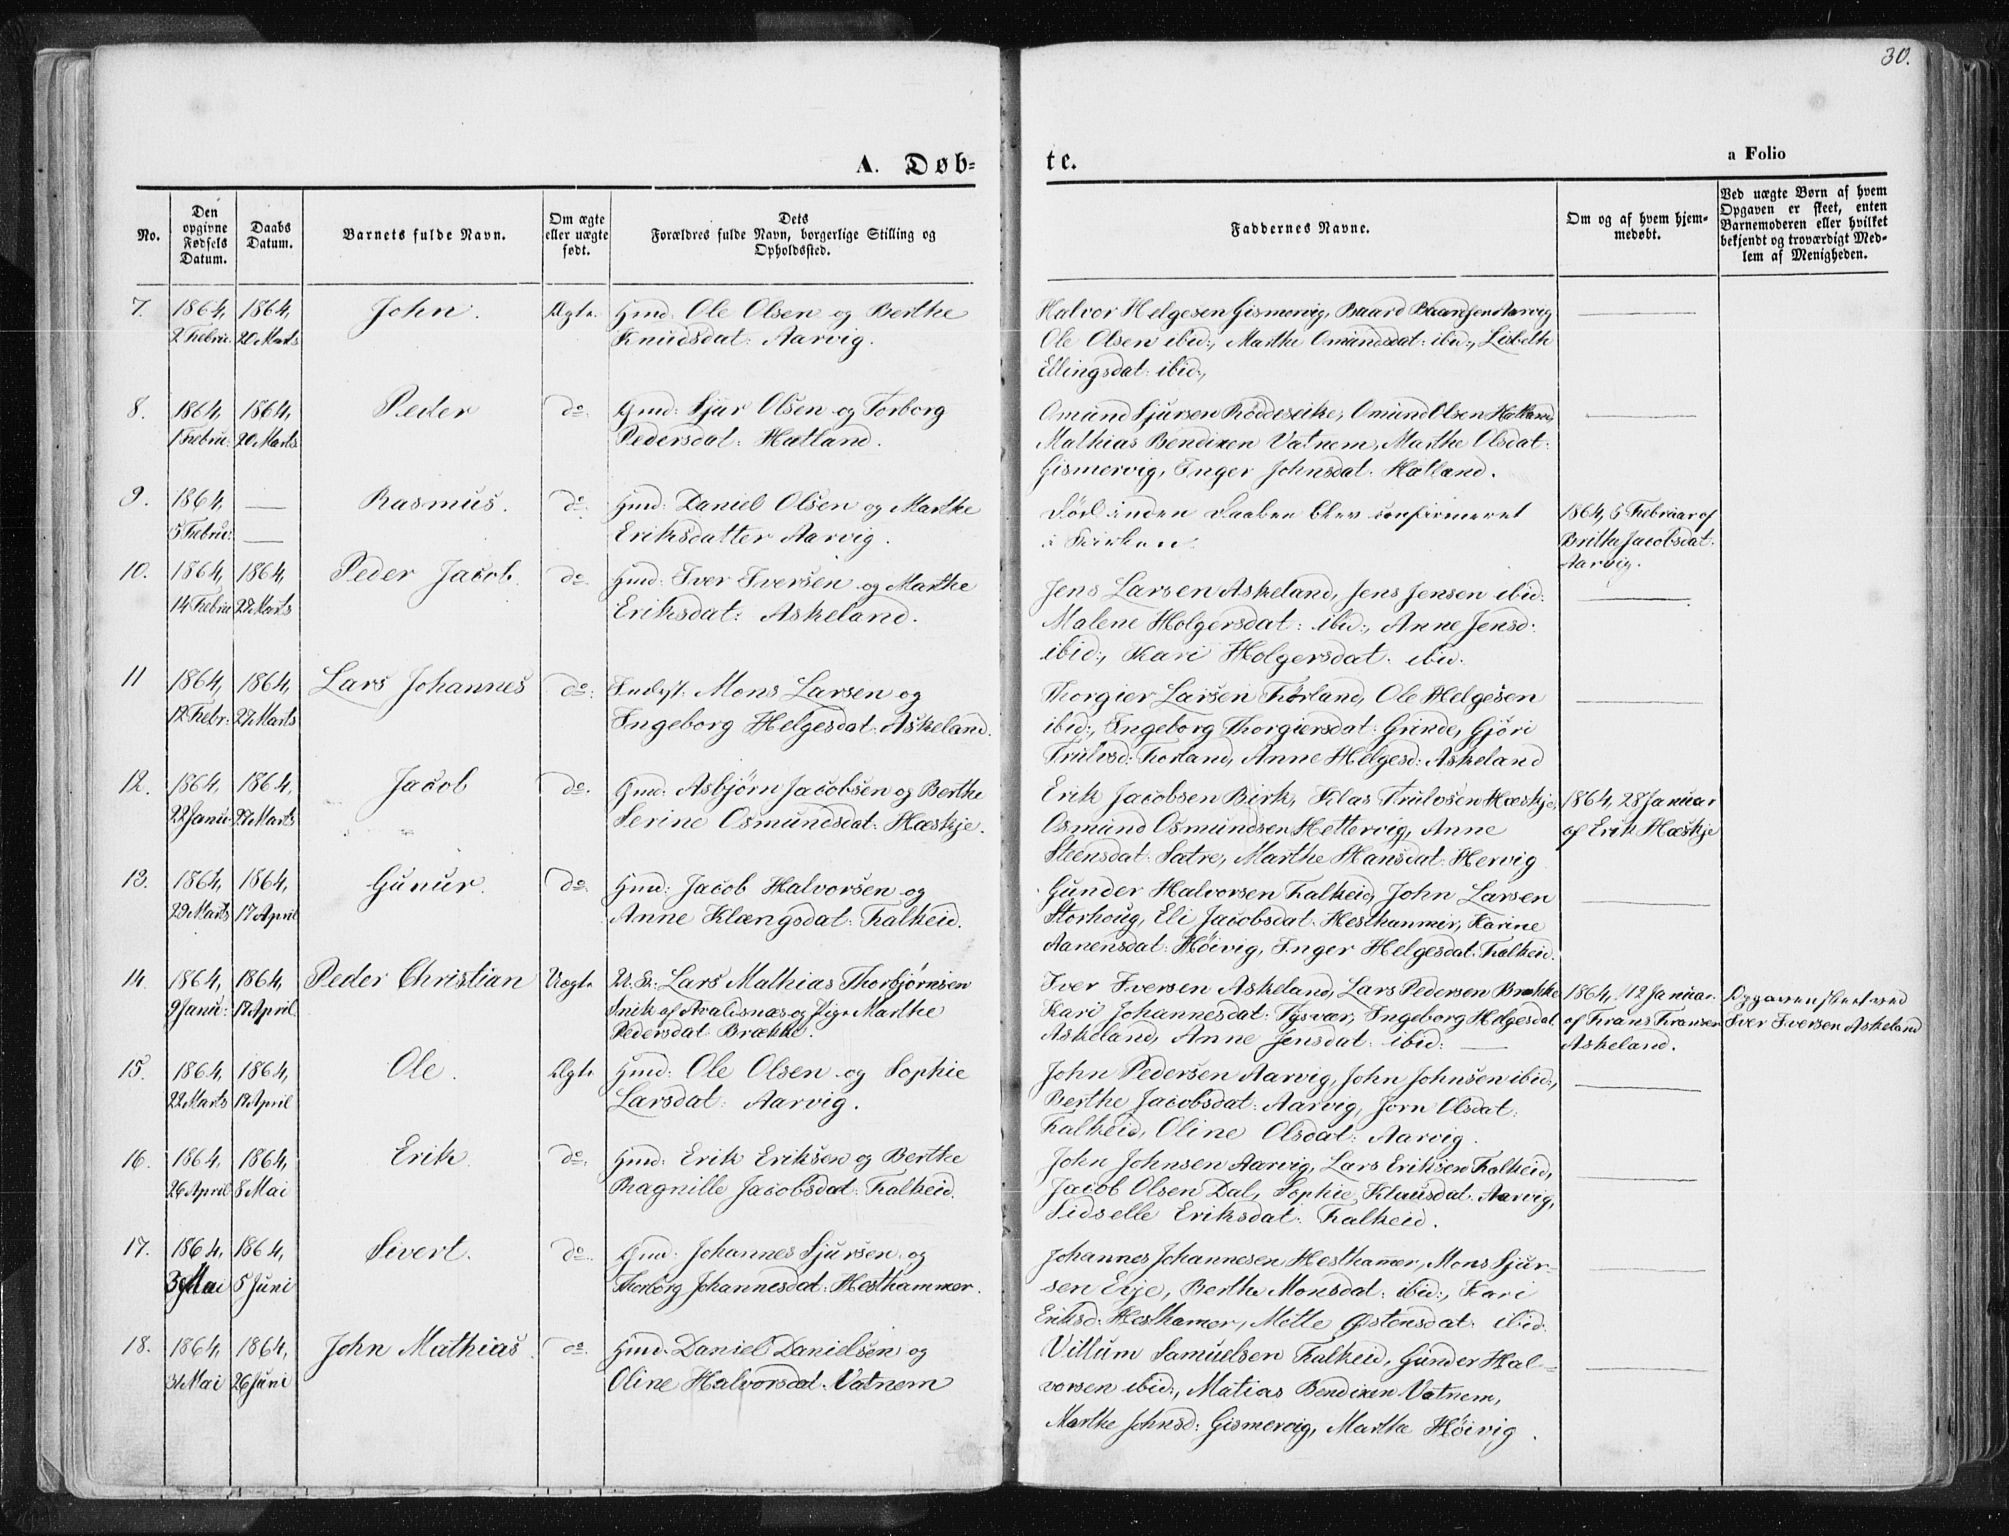 30.
A. Døb-
te.
a Folio
No.
Den opgivne Fødsels Datum.
Daabs Datum.
Barnets fulde Navn.
Om ægte eller uægte født.
Dets Forældres fulde Navn, borgerlige Stilling og Opholdssted.
Faddernes Navne.
Om og af hvem hjemmedøbt.
Ved uægte Børn af hvem Opgaven er skeet, enten Barnemoderen eller hvilket bekjendt og troværdigt Medlem af Menigheden.
7. 1864, 1864, John. Ægte. Gmd: Ole Olsen og Berthe
2 Febru: 20 Marts Knudsdat: Aarvig.
Halvor Helgesen Gismervig, Baard Baardsen Aarvig
Ole Olsen ibid:, Marthe Omundsdat: ibid:, Lisbeth
Ellingsdat: ibid:,
8. 1864, 1864, Peder do. Gmd: Sjur Olsen og Torborg
1 Febru: 20 Marts Pedersdat: Hatland.
Omund Sjursen Röddeseike, Omund Olsen Hatland,
Mathias Bendixen Vatnem, Marthe Olsdat:
Gismervig, Inger Johnsdat: Hatland.
9. 1864, — Rasmus. do. Gmd: Daniel Olsen og Marthe
5 Febru: — Eriksdatter Aarvig.
Död inden Daaben blev confirmeret
i Kirken.
1864, 5 Februar af
Brithe Jacobsdat:
Aarvig.
10. 1864, 1864, Peder Jacob. do. Gmd: Iver Iversen og Marthe
14 Febru 28 Marts Eriksdat: Askeland.
Jens Larsen Askeland, Jens Jensen ibid:
Malene Holgersdat: ibid:, Anne Jensd:
ibid:, Kari Holgersdat: ibid:
11 1864, 1864, Lars Johannes do: Indst: Mons Larsen og
12 Febr: 27 Marts Ingeborg Helgesdat: Askeland.
Thorgier Larsen Førland, Ole Helgesen
ibid:, Ingeborg Thorgiersdat: Grinde, Gjöri
Trulvsd: Førland, Anne Helgesd: Askeland
12. 1864, 1864, Jacob do. Gmd: Asbjørn Jacobsen og Berthe
22 Janu: 28 Marts Serine Osmundsdat: Hæskje.
Erik Jacobsen Birk, Klas Trulvsen Hæskje,
Osmund Osmundsen Hettervig, Anne
Steensdat: Satre, Marthe Hansdat: Hervig
1864, 28 Januar
af Erik Hæskje
13. 1864, 1864, Gunur. do. Gmd: Jacob Halvorsen og
29 Marts 17 April Anne Klængsdat: Falkeid.
Gunder Halvorsen Falkeid, John Larsen
Storhoug, Eli Jacobsdat: Hesthammer, Karine
Aanensdat: Höivig, Inger Helgesdat: Falkeid.
14. 1864, 1864, Peder Christian Uægte U. K: Lars Mathias Thorbjörnsen
9 Janu: 17 April Snik af Avalsnæs og Pige Marthe
Pedersdat: Brække.
Iver Iversen Askeland, Lars Pedersen Brække
Kari Johannesdat: Tysvær, Ingeborg Helgesdat
Askeland, Anne Jensdat: ibid:
1864, 12 Januar:
af Frans Fransen
Askeland.
Opgaven skeet ved
Iver Iversen Askeland
15. 1864, 1864, Ole. Ægte Gmd: Ole Olsen og Sophie
22 Marts 17 April Larsdat: Aarvig.
John Pedersen Aarvig, John Johnsen ibid:,
Berthe Jacobsdat: Aarvig, Jorn Olsdat:
Falkeid, Oline Olsdat: Aarvig.
16. 1864, 1864, Erik do. Gmd: Erik Eriksen og Berthe
26 April 8 Mai Ragnille Jacobsdat: Falkeid.
John Johnsen Aarvig, Lars Eriksen Falkeid,
Jacob Olsen Dal, Sophie Klausdat: Aarvig,
Sidselle Eriksdat: Falkeid.
17. 1864, 1864, Sivert. do. Gmd: Johannes Sjursen og
3 Mai 5 Juni Thorborg Johannesdat: Hesthammer.
Johannes Johannesen Hesthamer, Mons Sjur-
sen Eije, Berthe Monsdat: ibid:, Kari
Eriksd: Hesthamer, Mette Østensdat: ibid:
18. 1864, 1864, John Mathias. do. Gmd: Daniel Danielsen og
31 Mai 26 Juni Oline Halvorsdat: Vatnem
Villum Samuelsen Falkeid, Gunder Hal-
vorsen ibid:, Matias Bendixen Vatnem,
Marthe Johnsd: Gismervig, Martha Höivig.